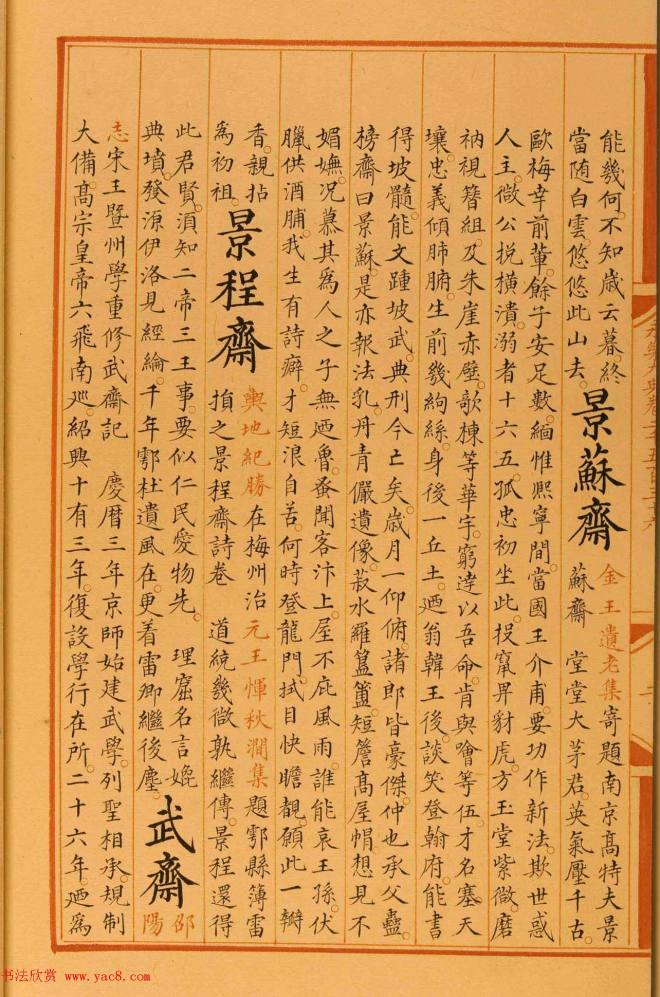 能幾何不知歲云暮終
當随白雲悠悠此山去
景蘇齋
金王遺老集寄題南京髙特夫景
蘇齋 堂堂大茅君英氣壓千古
歐梅幸前軰餘子安足數緬惟熈寧間當國王介甫要功作新法欺世惑
人主微公挽橫潰溺者十六五孤忠初坐此投竄畀豺虎方玉堂紫微磨
衲視簪組及朱崖赤壁歌棟等華宇窮逹以吾命肯與噲等伍才名塞天
壤忠義傾肺腑生前幾絇絲身後一丘土廼翁韓王後談笑登翰府能書
得坡髓能文踵坡武典刑今亡矣歲月一仰俯諸郎皆豪傑仲也承父蠱
榜齋曰景蘇是亦報法乳丹青儼遺像菽水羅簋簠短簷髙屋帽想見不
媚嫵況慕其為人之子無廼魯蚤聞客汴上屋不庇風雨誰能哀王孫伏
臘供酒脯我生有詩癖才短浪自苦何時登龍門拭目快瞻覩願此一瓣
香親拈
為初祖
景程齋
輿地紀勝在梅州治元王惲秋澗集題鄠縣簿雷
損之景程齋詩卷 道統幾微孰繼傳景程還得
此君賢須知二帝三王事要似仁民愛物先 理窟名言媲
典墳發源伊洛見經綸千年鄠杜遺風在更着雷卿繼後塵
武齋
邵
陽
志宋王暨州學重修武齋記 慶曆三年京師始建武學列聖相承規制
大備髙宗皇帝六飛南廵紹興十有三年復設學行在所二十六年廼為
书法欣赏 www.yac8.com